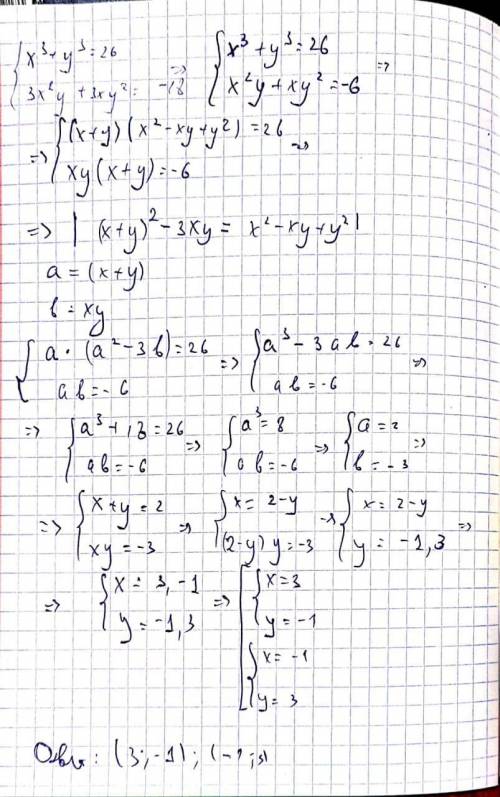 { x³ + y³ = 26
3x²y + 3xy² = -18 => { x³ + y³ = 26
x²y + xy² = -6 =>
=> { (x+y)(x² - xy + y²) = 26
xy(x+y) = -6 =>
=> | (x+y)² - 3xy = x² - xy + y² |
a = (x+y)
b = xy
{ a · (a² - 3b) = 26
ab = -6 => { a³ - 3ab = 26
ab = -6 =>
=> { a³ + 18 = 26
ab = -6 => { a³ = 8
ab = -6 => { a = 2
b = -3 =>
=> { x + y = 2
xy = -3 => { x = 2-y
(2-y) y = -3 => { x = 2-y
y = -1,3 =>
=> { x = 3,-1
y = -1,3 => [ { x = 3
y = -1
{ x = -1
y = 3
: (3;-1); (-1;3)